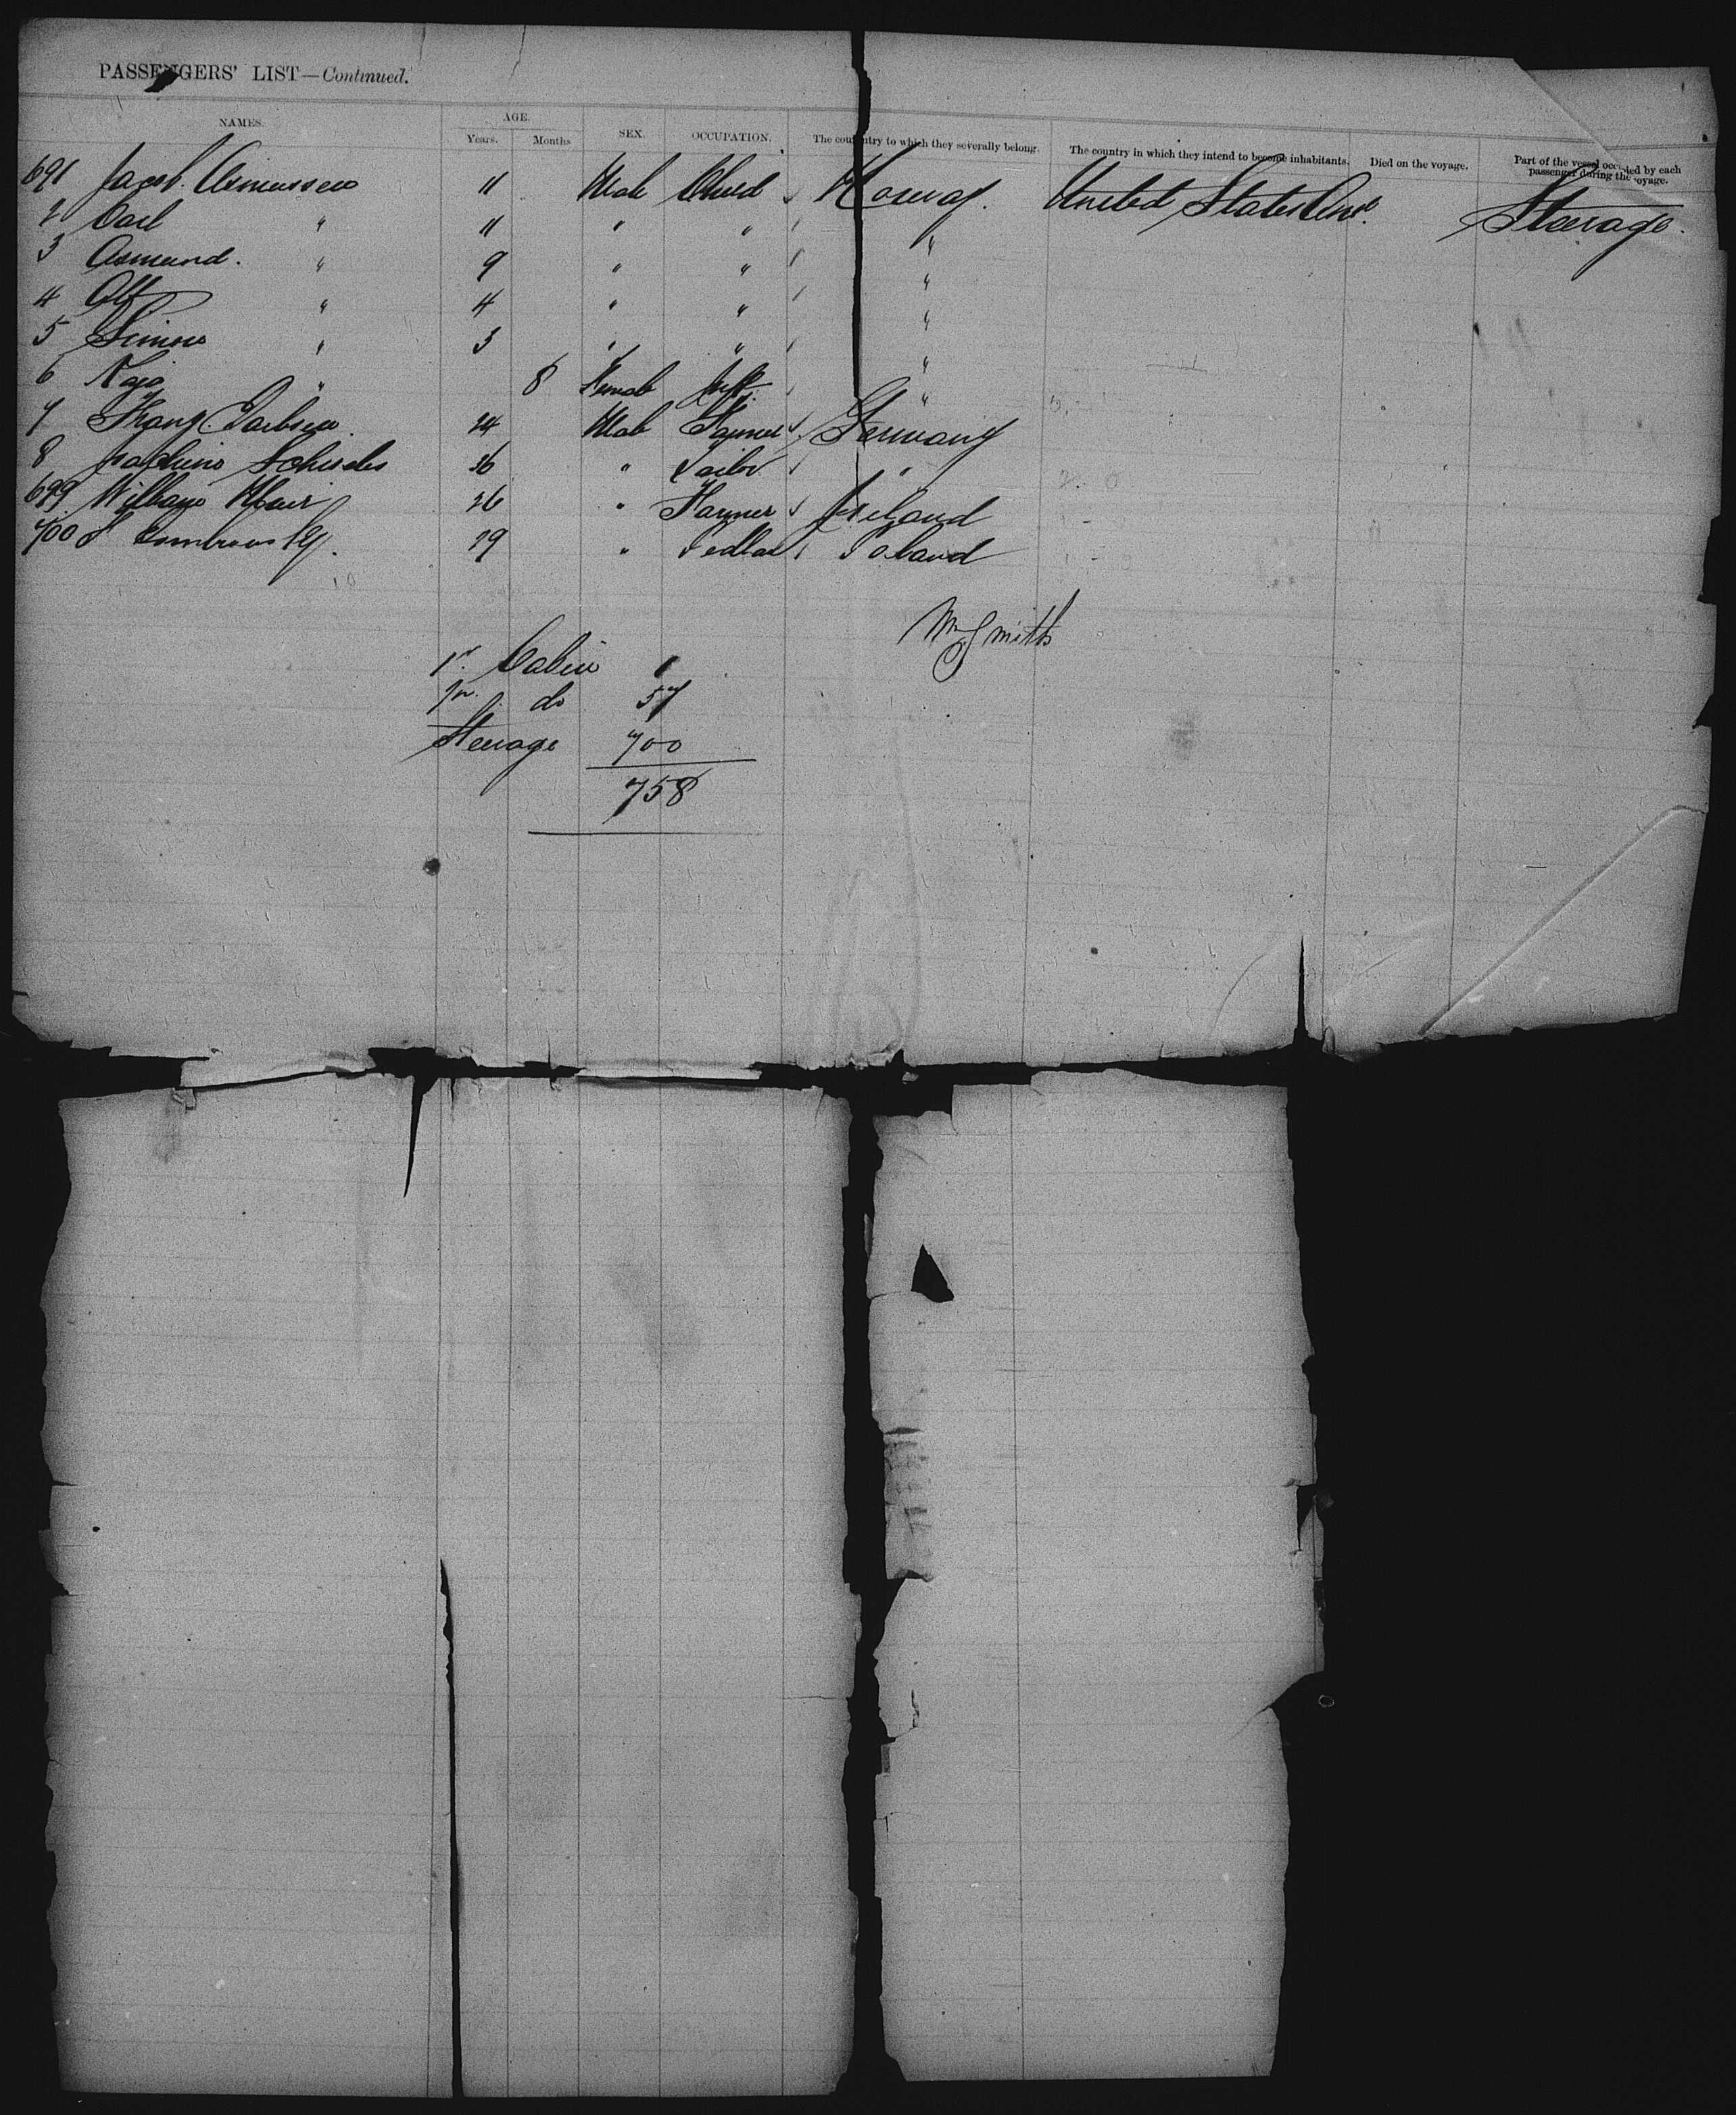 PASSENGERS' LIST—Continued.
NAMES. AGE. SEX. OCCUPATION. The country to which they severally belong. The country in which they intend to become inhabitants. Died on the voyage. Part of the vessel occupied by each passenger during the voyage.
Years. Months
691 Jacob Asmussen 11 Male Child Norway. United States Steerage.
2 Carl " 11 " " "
3 Asmund. " 9 " " "
4 Alf " 4 " " "
5 Simon " 3 " " "
6 Kaja " 8 Female Inft. "
7 24 Male Farmer Germany
8 36 " Tailor "
699 William Muir 26 " Farmer Ireland
700 29 " Pedlar Poland
Wm Smith
1st. Cabin 1
do 57
Steerage 700
758